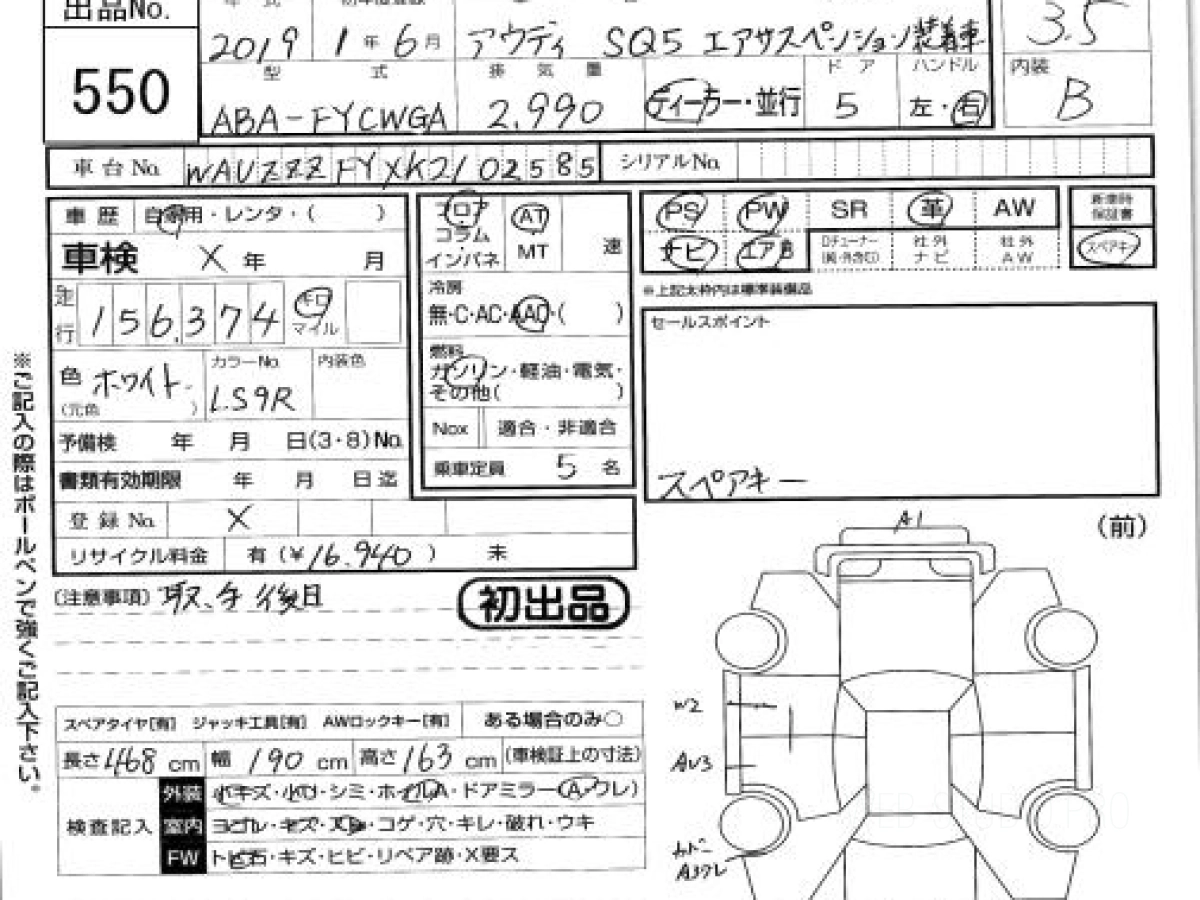 出品No.
550
2019 1年6月 アウディ SQ5 エアサスペンション装着車
3.5
型式 排気量 ドア ハンドル 内装
ABA-FYCWGA 2.990 ディーラー・並行 5 左・右 B
車台No. WAUZZZFYXK2102585 シリアルNo.
車歴 自家用・レンタ・( )
車検 X 年 月
走行 156,374 キロ マイル
色 ホワイト (元色 )
カラーNo. LS9R 内装色
予備検 年 月 日(3・8)No.
書類有効期限 年 月 日迄
登録No. X
リサイクル料金 有(¥16.940) 未
フロア コラム インパネ
AT MT 速
冷房
無・C・AC・AAC・( )
燃料
ガソリン・軽油・電気・
その他( )
Nox 適合・非適合
乗車定員 5 名
PS PW SR 革 AW
新車時保証書
ナビ エアB Dチューナー 社外ナビ 社外AW
スペアキー
※上記太枠内は標準装備品
セールスポイント
スペアキー
※ご記入の際はボールペンで強くご記入下さい。
(注意事項) 取、キ後日
初出品
スペアタイヤ[有] ジャッキ工具[有] AWロックキー[有] ある場合のみ○
長さ468cm 幅190cm 高さ163cm (車検証上の寸法)
検査記入
外装 小キズ・小凹・シミ・ホイルA・ドアミラー(A・ワレ)
室内 ヨゴレ・キズ・スレ・コゲ・穴・キレ・破れ・ウキ
FW トビ石・キズ・ヒビ・リペア跡・X要ス
(前)
A1
W2
AU3
カバー
A3ワレ